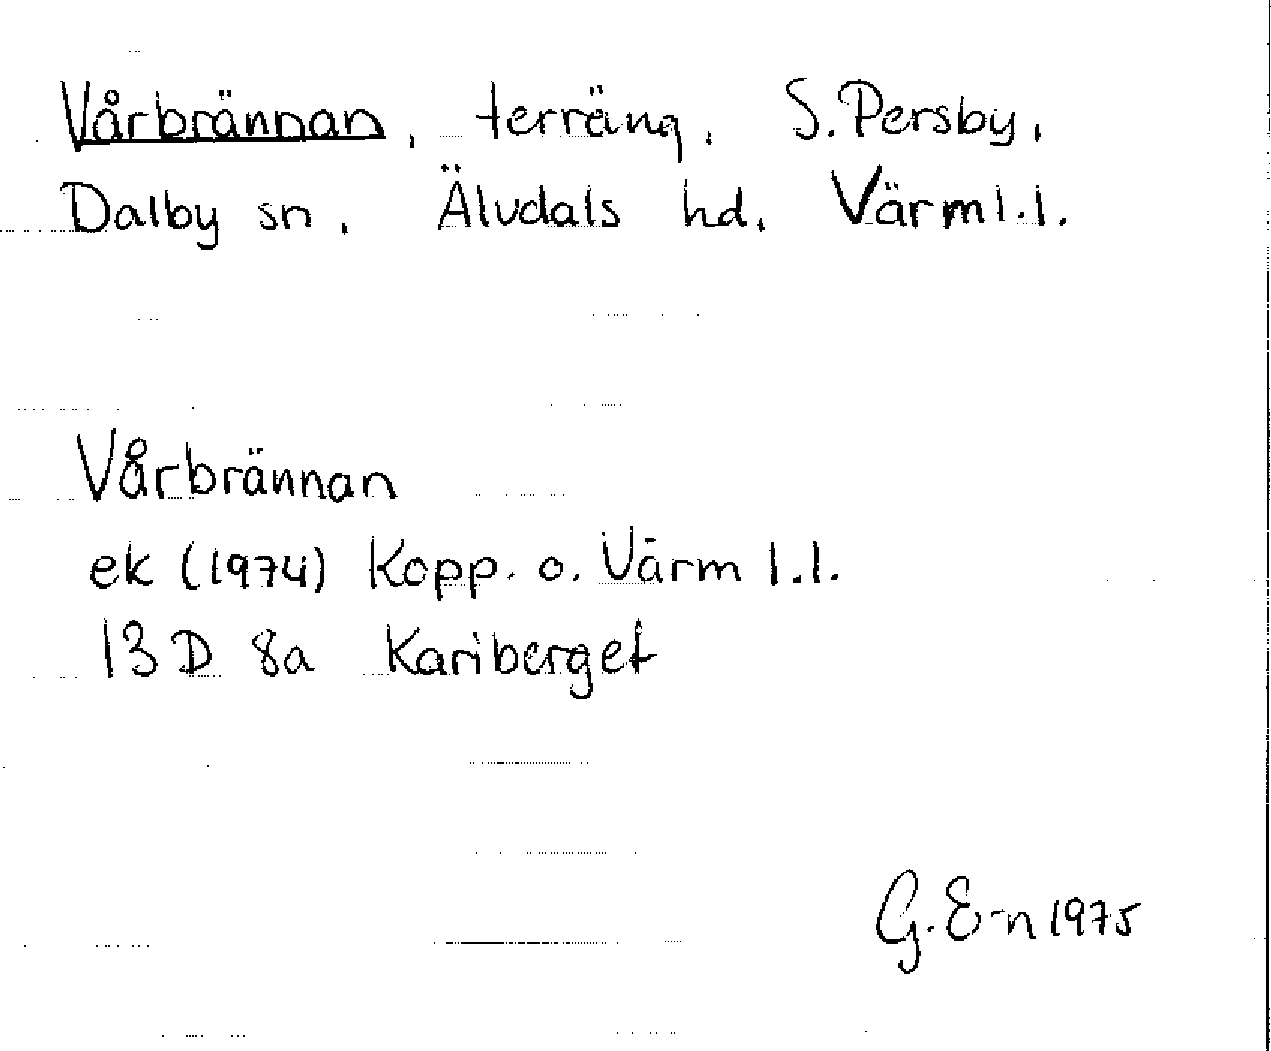 Vårbrännan, terräng, S. Persby,
Dalby sn, Älvdals hd, Värml. l.
Vårbrännan
ek (1974) Kopp. o. Värm l.l.
13 D 8a Kariberget
G. E-n 1975